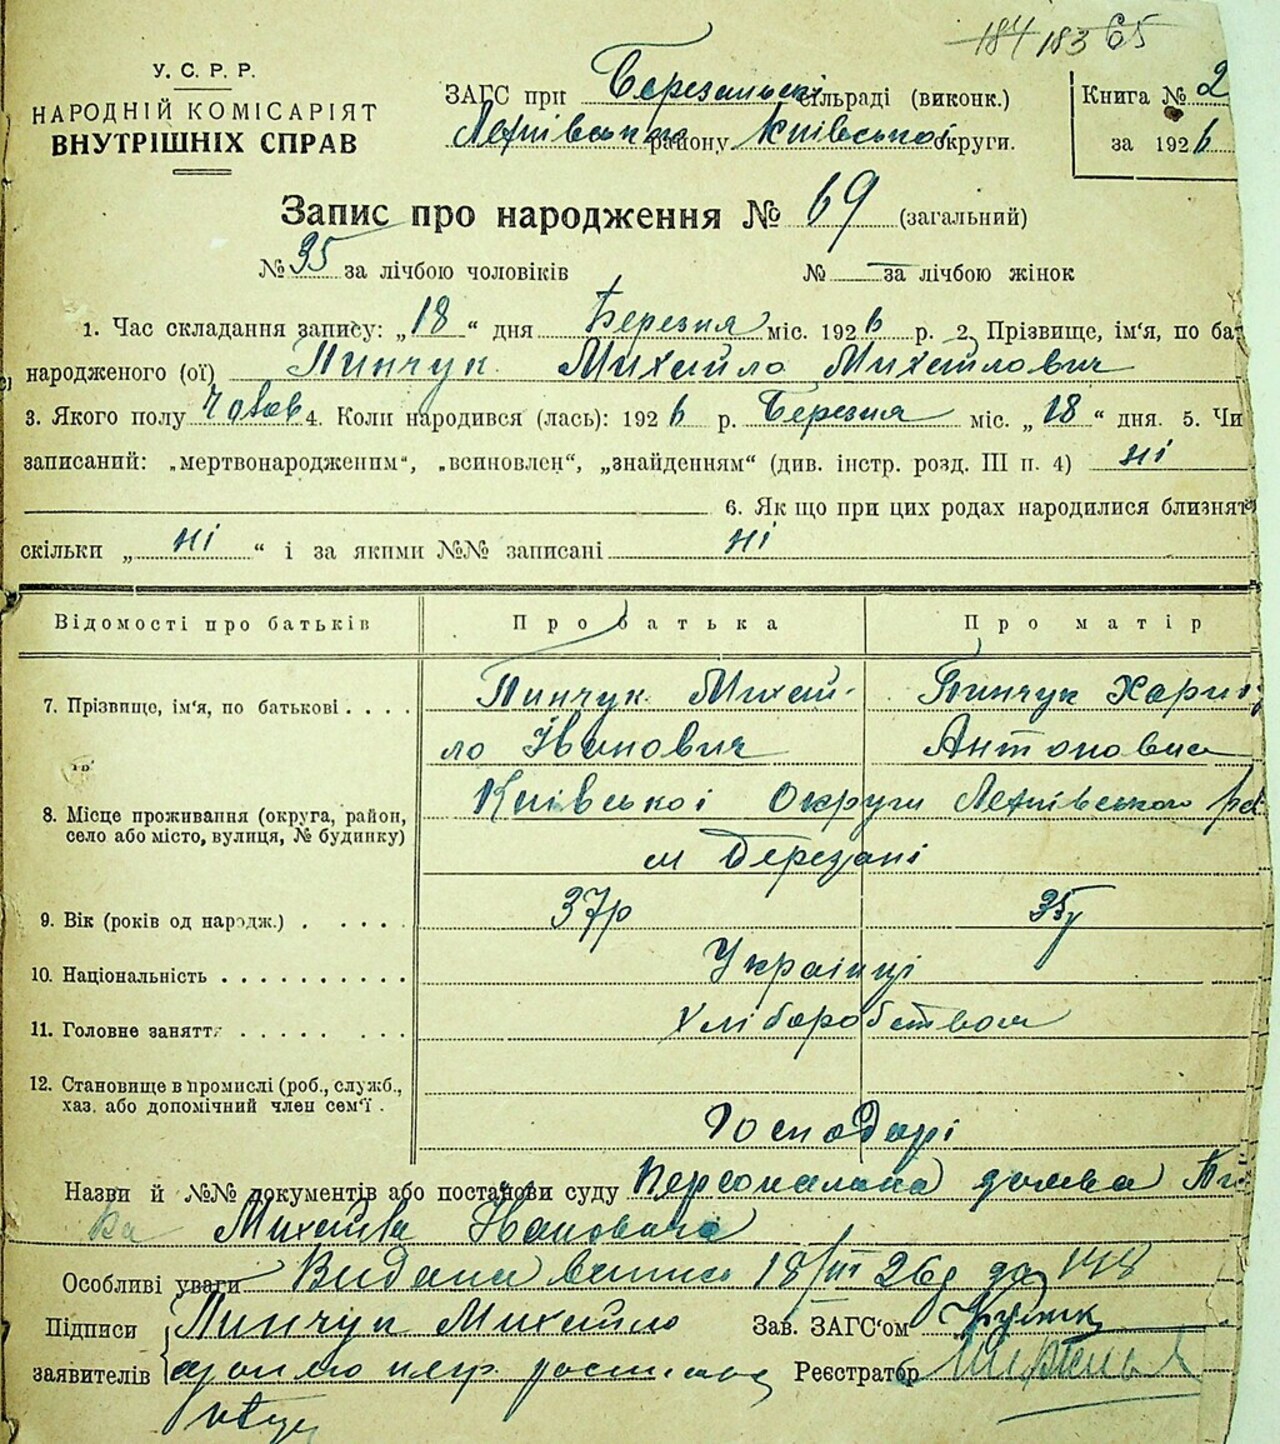 184 183 65
У. С. Р. Р.
НАРОДНІЙ КОМІСАРІЯТ
ВНУТРІШНІХ СПРАВ
ЗАГС при Березанські сільраді (виконк.)
району Київської округи.
Книга № 2
за 1926
Запис про народження № 69 (загальний)
№ 35 за лічбою чоловіків № — за лічбою жінок
1. Час складання запису: „18“ дня Березня міс. 1926 р. 2. Прізвище, ім'я, по бат
народженого (ої) Пинчук Михайло Михайлович
3. Якого полу Чолов 4. Коли народився (лась): 1926 р. Березня міс. „18“ дня. 5. Чи
записаний: „мертвонародженим“, „всиновлен“, „знайденням“ (див. інстр. розд. III п. 4) ні
6. Як що при цих родах народилися близнят
скільки „ні“ і за якими №№ записані ні
Відомості про батьків Про батька Про матір
7. Прізвище, ім'я, по батькові . . . . Пинчук Михай- Пинчук
ло Іванович Антоновна
8. Місце проживання (округа, район, село або місто, вулиця, № будинку) Київської Округи
м Березані
9. Вік (років од народж.) . . . . . 37р 35р
10. Національність . . . . . . . . . . Українці
11. Головне заняття . . . . . . . . Хліборобством
12. Становище в промислі (роб., служб., хаз. або допомічний член сем'ї . Господарі
Назви й №№ документів або постанови суду Персональна
Михайла Івановича
Особливі уваги Видана 18/III 26р 148
Підписи Пинчук Михайло Зав. ЗАГС'ом
заявителів Реєстратор